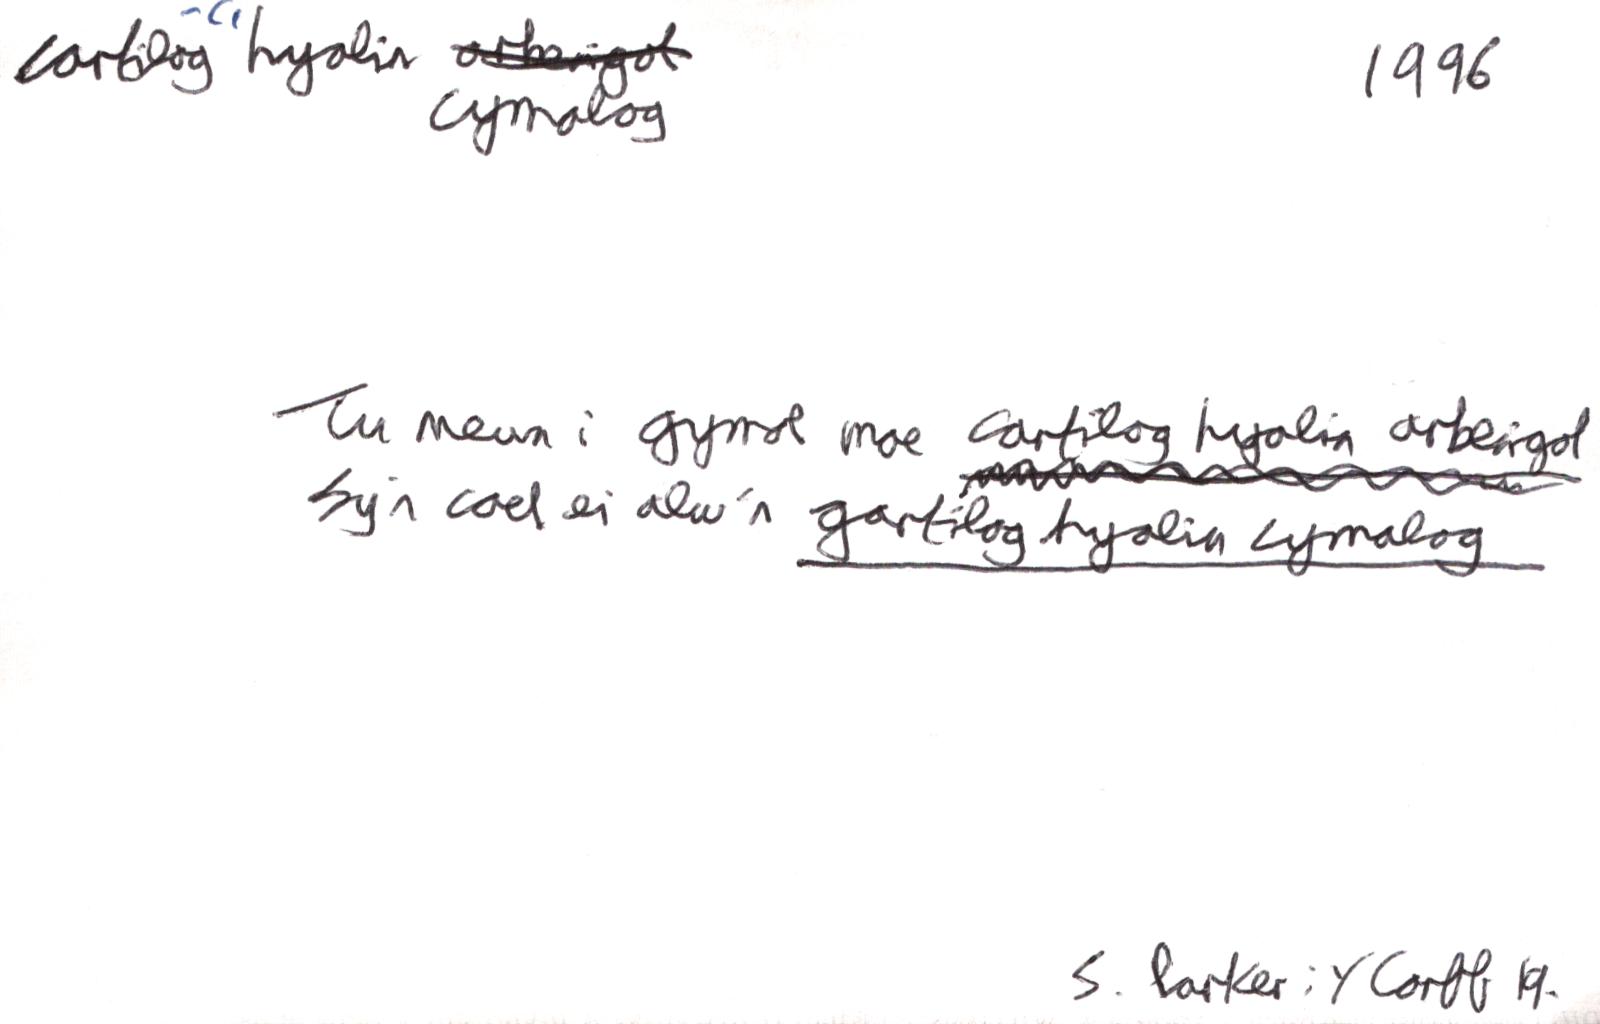 cartilog hyalin arbenigol 1996
cymalog
Tu mewn i gymal mae cartilag hyalin arbenigol
sy'n cael ei alw'n gartilag hyalin cymalog
S. Parker: Y Corff 19.